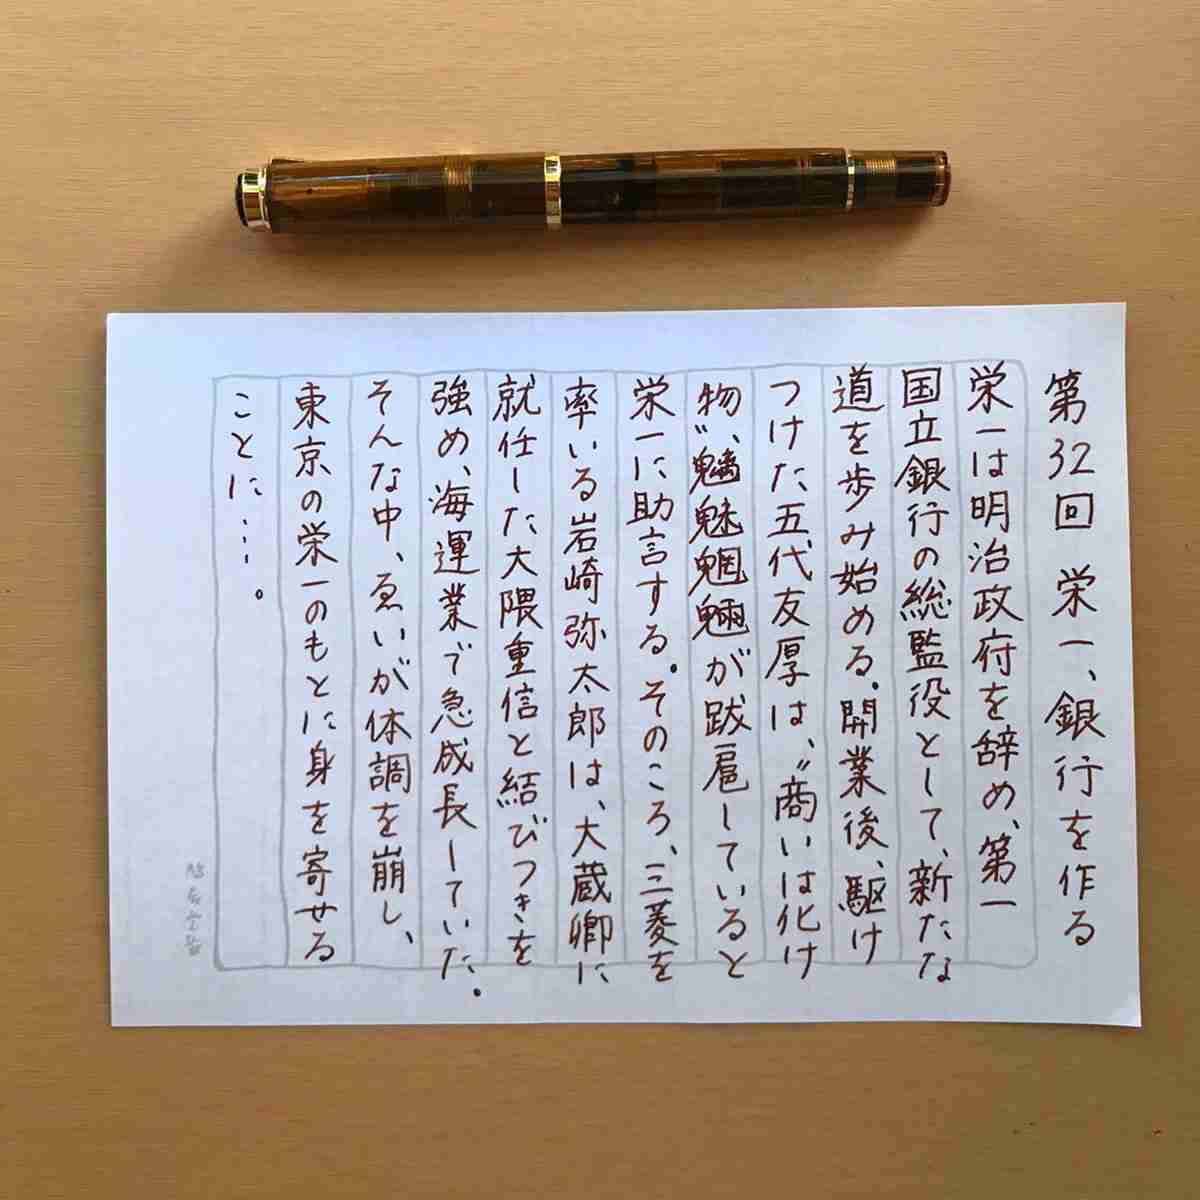 第32回 栄一、銀行を作る
栄一は明治政府を辞め、第一
国立銀行の総監役として、新たな
道を歩み始める。開業後、駆け
つけた五代友厚は、〝商いは化け
物、魑魅魍魎が跋扈していると
栄一に助言する。そのころ、三菱を
率いる岩崎弥太郎は、大蔵卿に
就任した大隈重信と結びつきを
強め、海運業で急成長していた。
そんな中、ゑいが体調を崩し、
東京の栄一のもとに身を寄せる
ことに……。